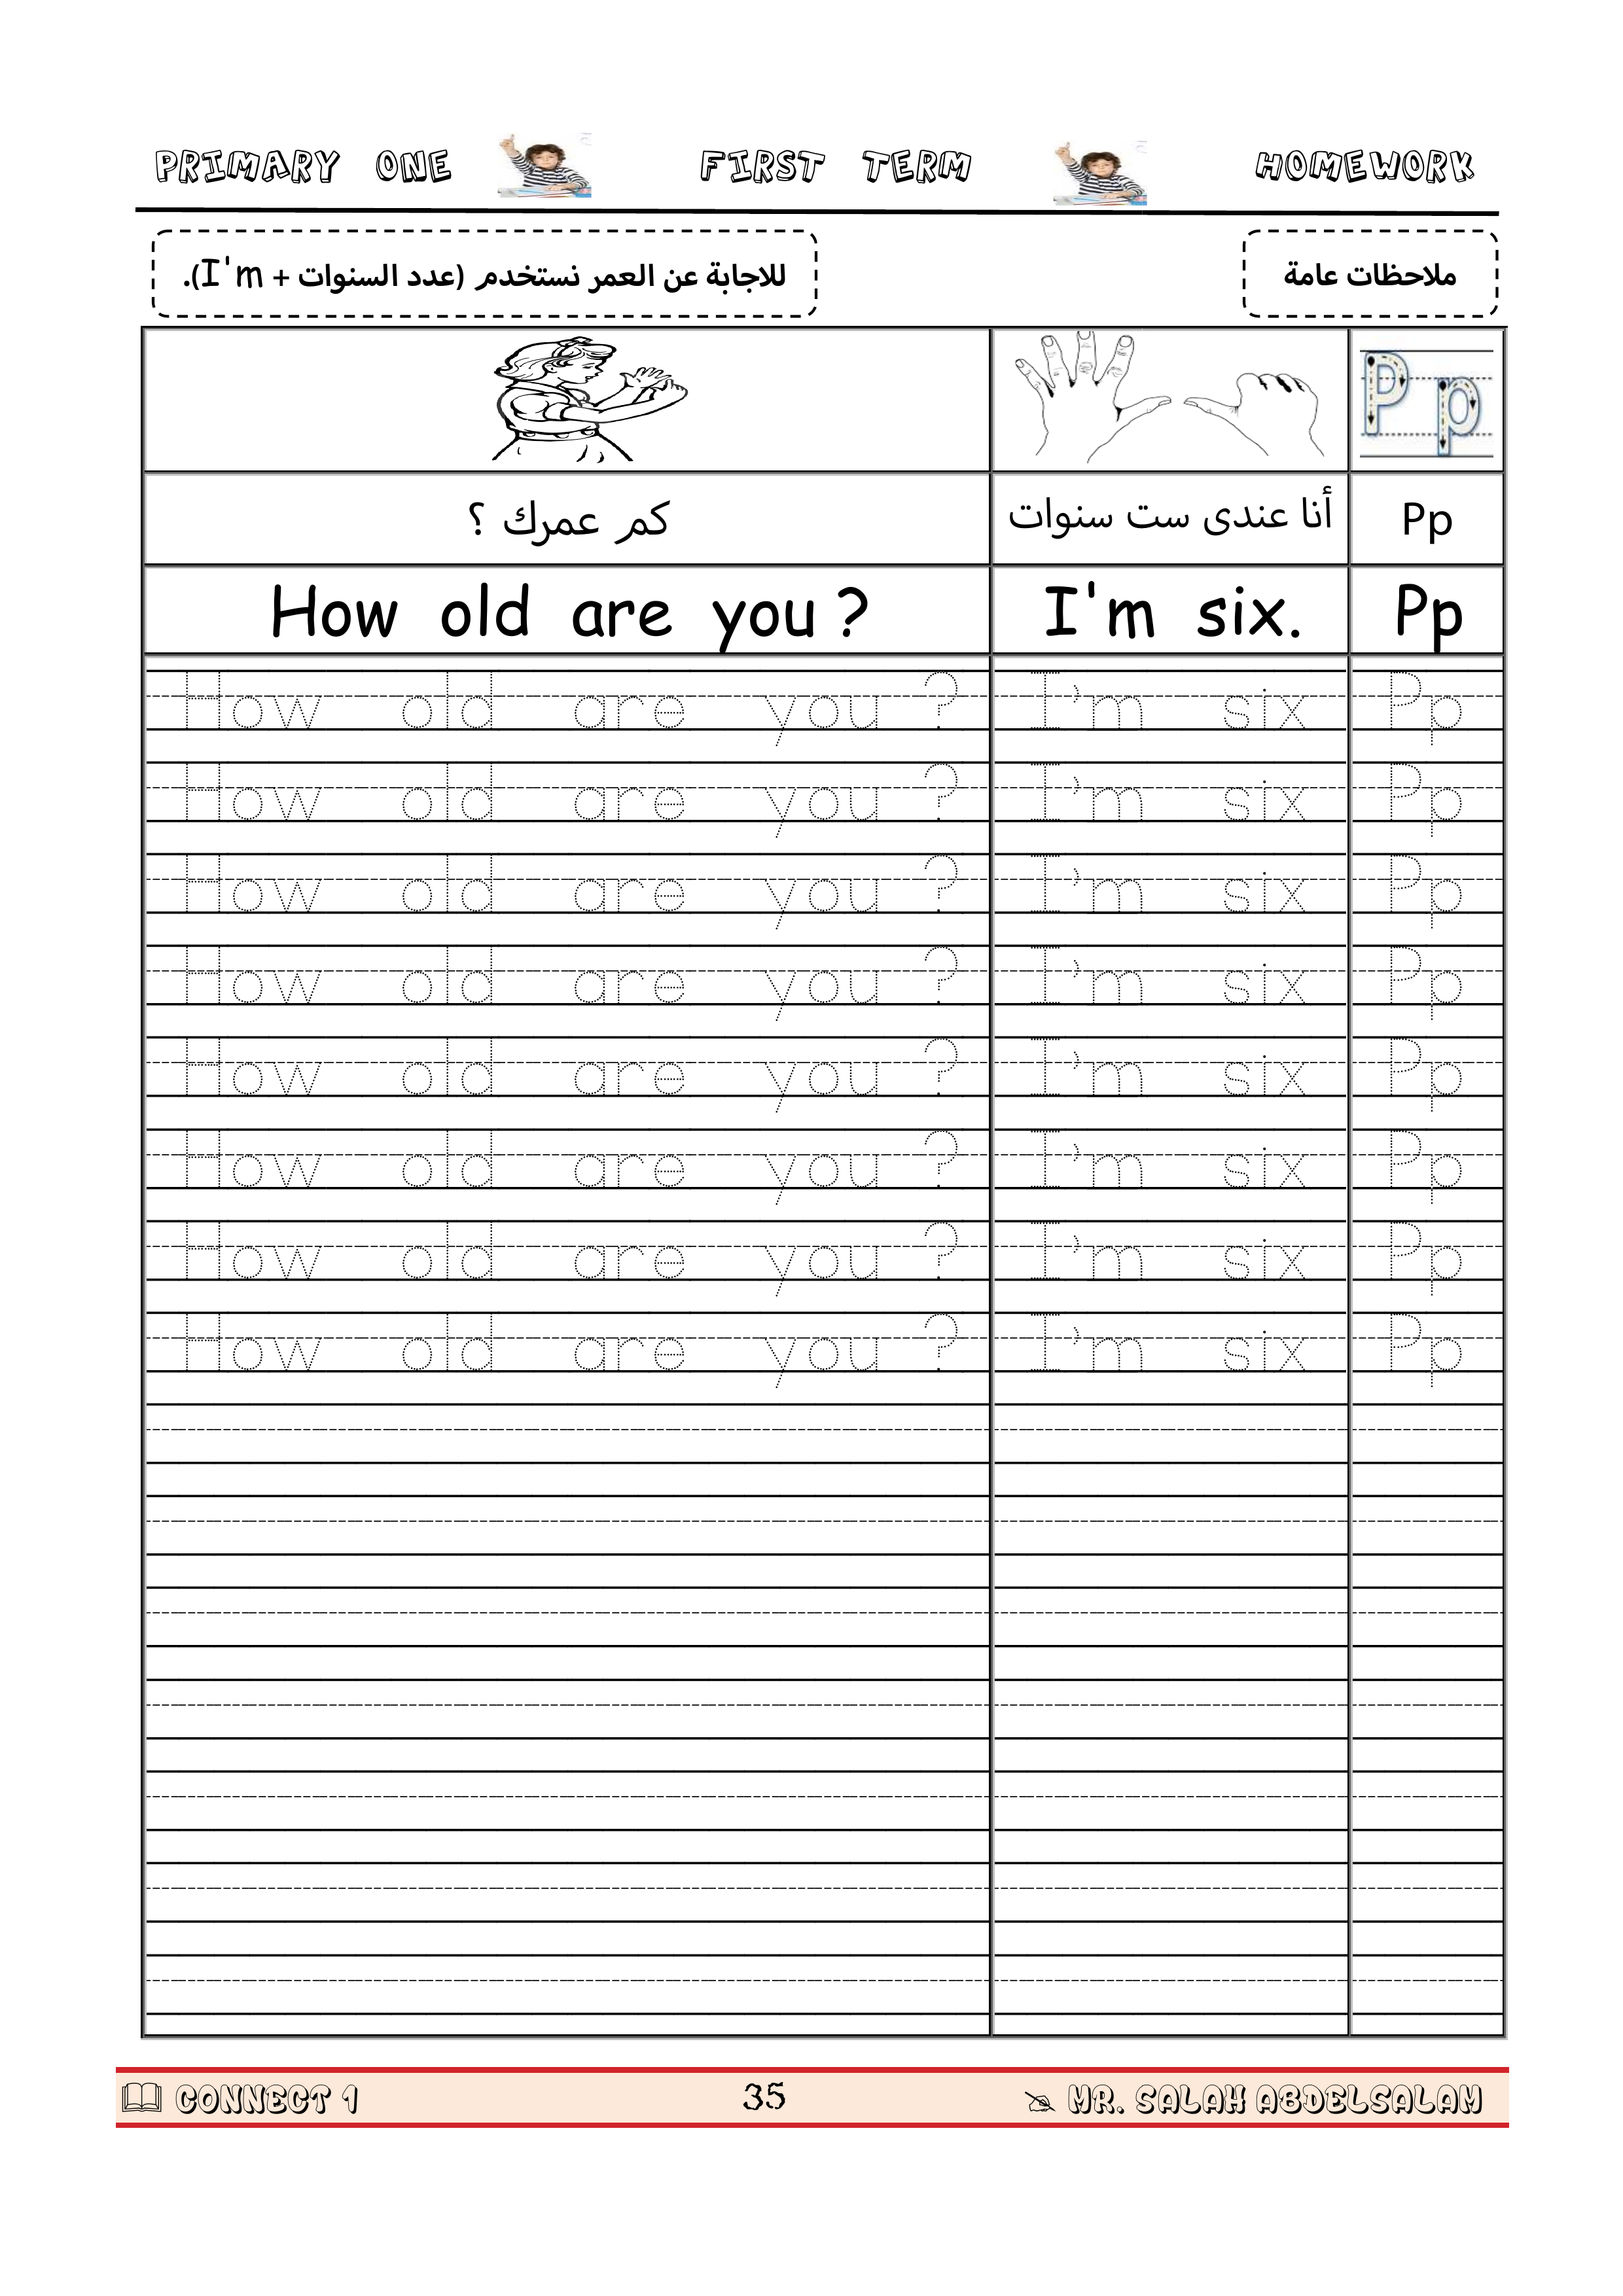 PRIMARY ONE FIRST TERM HOMEWORK
ملاحظات عامة
للاجابة عن العمر نستخدم (عدد السنوات + I'm).
Pp
كم عمرك ؟ أنا عندى ست سنوات Pp
How old are you ? I'm six. Pp
How old are you ? I'm six Pp
How old are you ? I'm six Pp
How old are you ? I'm six Pp
How old are you ? I'm six Pp
How old are you ? I'm six Pp
How old are you ? I'm six Pp
How old are you ? I'm six Pp
How old are you ? I'm six Pp
CONNECT 1 35 MR. SALAH ABDELSALAM